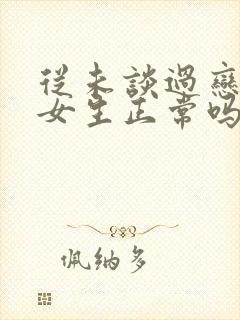 從未談過戀
女生正常嗎
佩納多